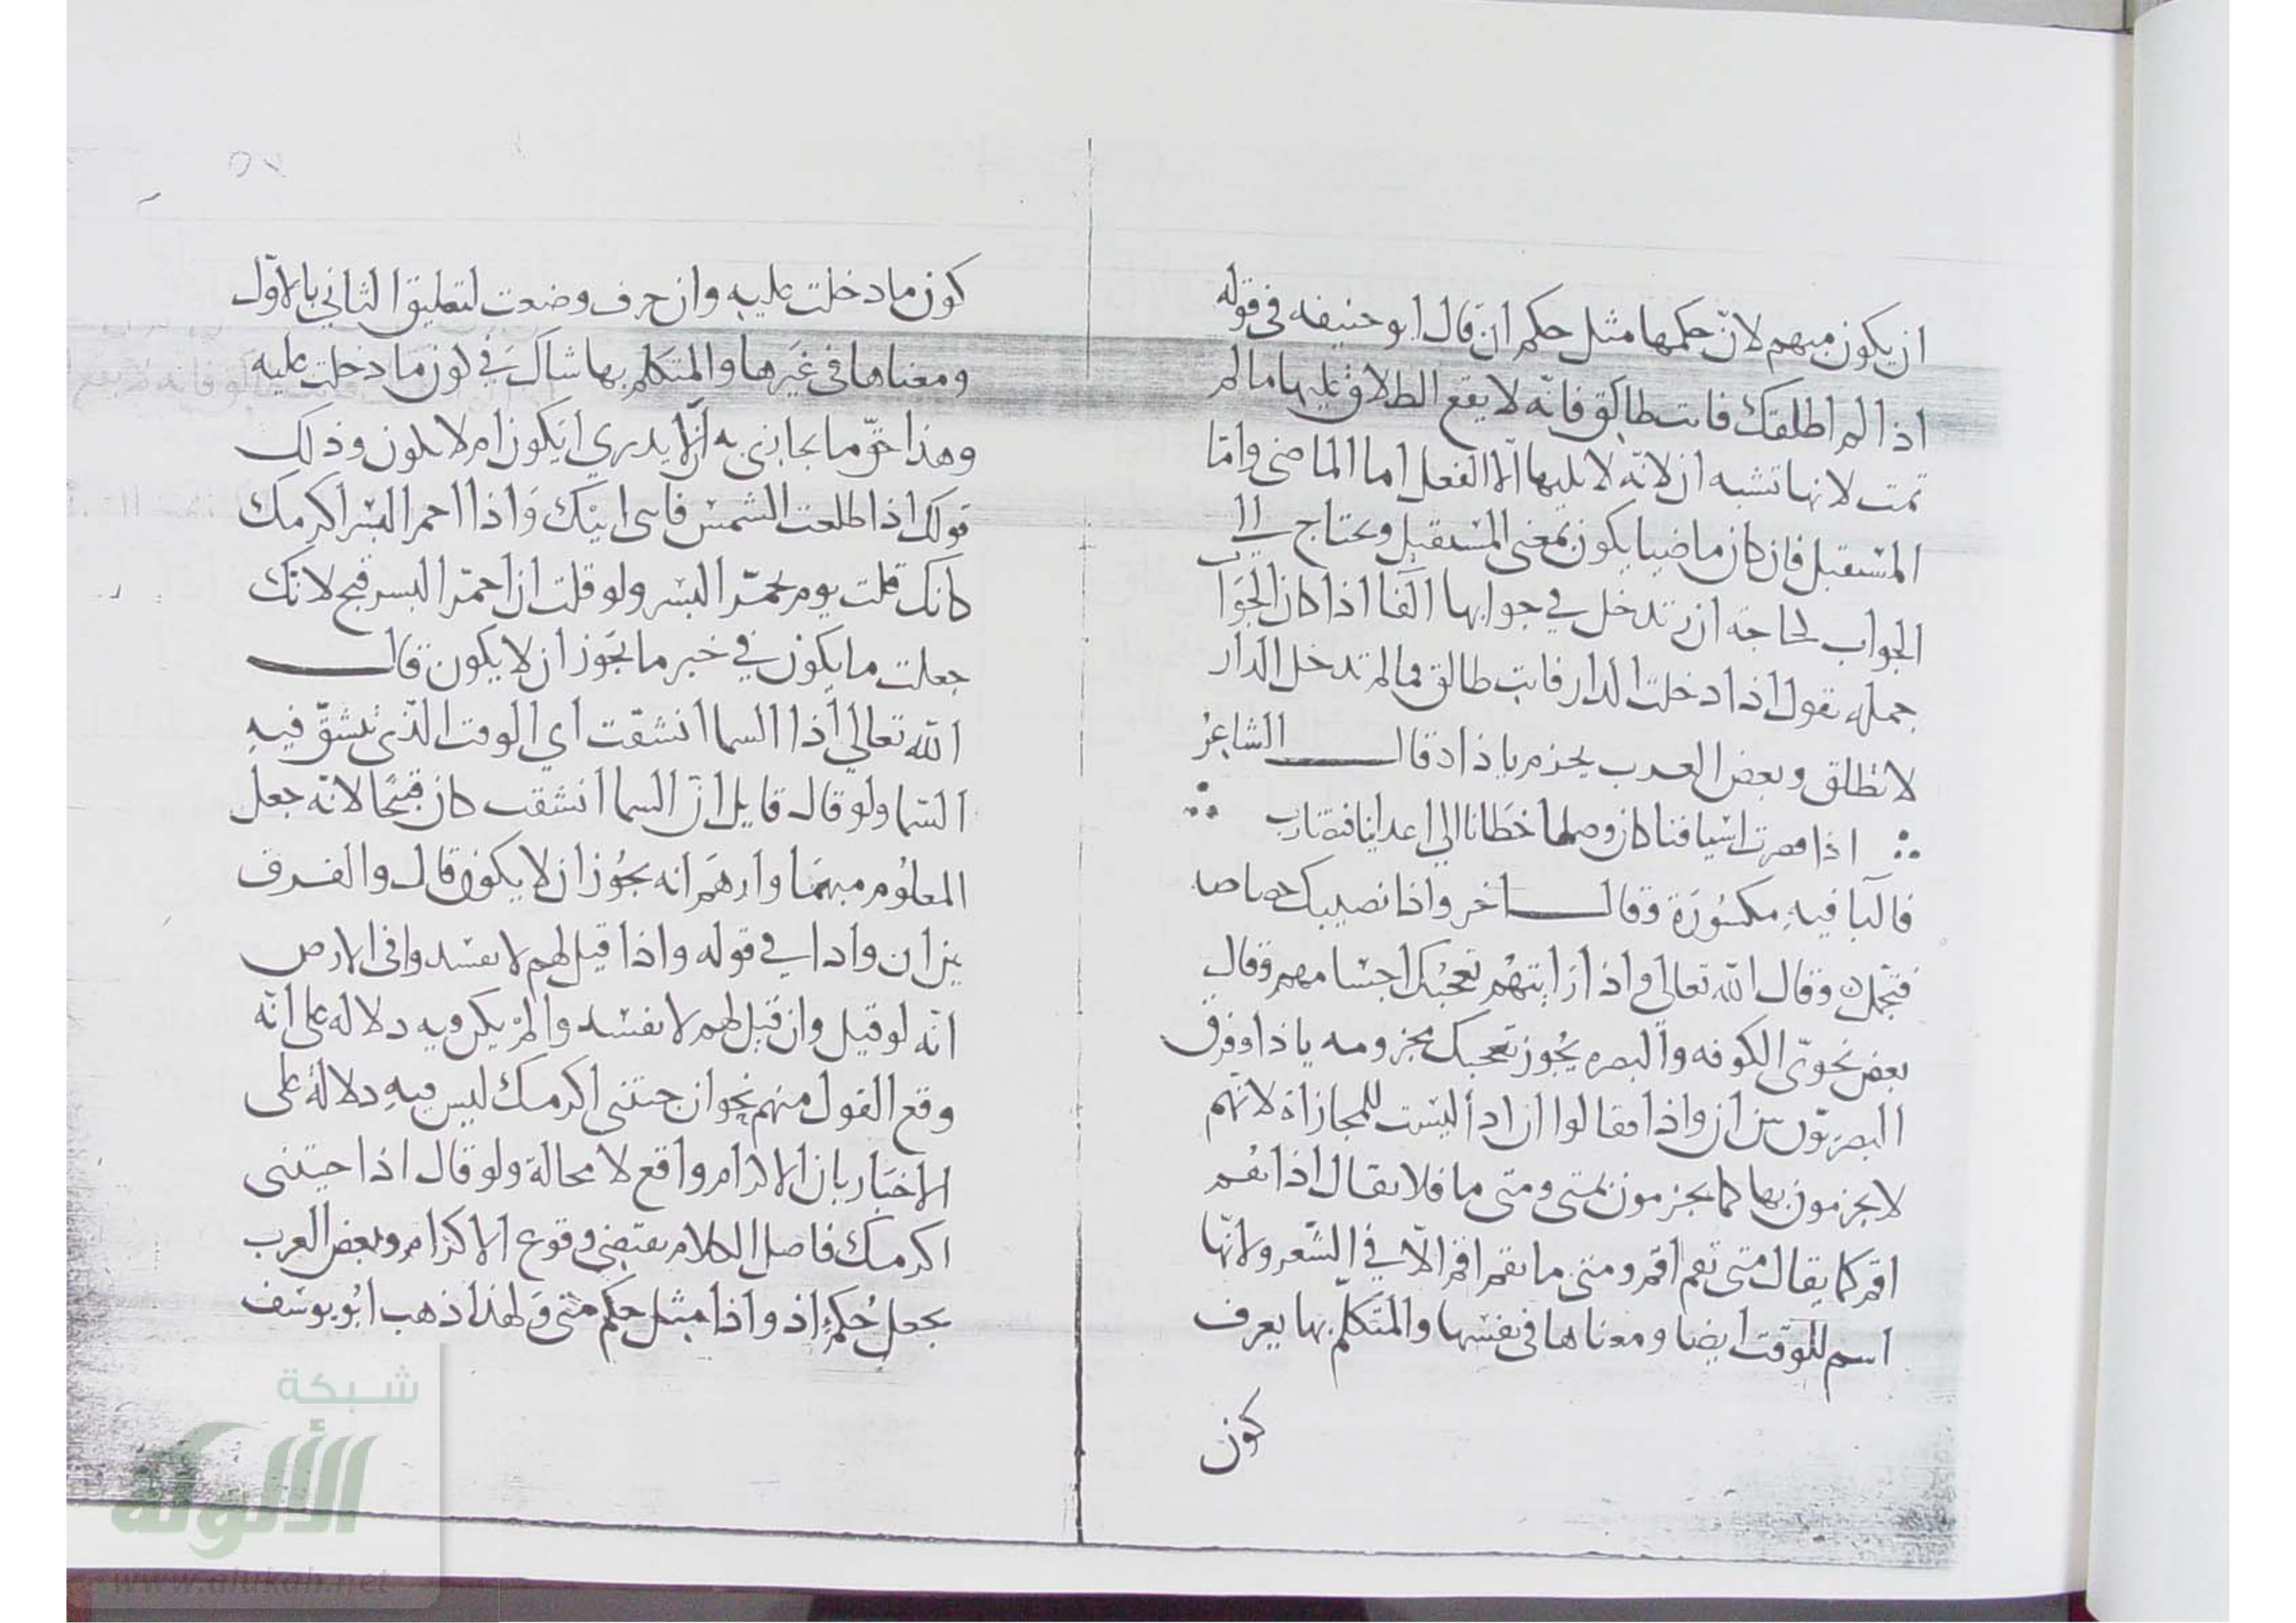 ان يكون مبهم لانّ حكمها مثل حكم ان قال ابو حنيفه في قوله
اذا لم اطلقك فانت طالق فانّه لا يقع الطلاق عليها ما لم
تمت لانها تشبه ان لانّه لا يليها الّا الفعل اما الماضي وامّا
المستقبل فان كان ماضيا يكون بمعنى المستقبل ويحتاج الي
الجواب لحاجة ان تدخل في جوابها الفا اذا كان الجوا
جمله تقول اذا دخلت الدار فانت طالق فما لم تدخل الدار
لا تطلق وبعض العرب يجزم باذا وقال الشاعرُ
اذا قصرت اسيافنا كان وصلها خطانا الي اعدائنا فنضارب
فالبا فيهِ مكسُورَة وقال اخر واذا تصبك خصاصه
فتجمّل وقال اللّه تعالى واذا رايتهُم تعجبُك اجسامهم وقال
بعض نحويّ الكوفه والبصره يجُوز تعجبك مجزومه باذا وفرق
البصريّون بين ان واذا فقالوا ان اذا ليست للمجازاة لانّهم
لا يجزمون بها كما يجزمون بمتى ومتى ما فلا يقال اذا تقُم
اقم كما يقال متى تقم اقم ومتى ما تقم اقم الّا في الشعر ولانّها
اسم للوقت ايضا ومعناها في نفسها والمتكلّم بها يعرف
كون
كون ما دخلت عليهِ وان حرف وضعت لتعليق الثاني بالاوّل
ومعناها في غَيرها والمتكلم بها شاك في كون ما دخلت عليه
وهذا حقّ ما يجازي به ان لا يدري ايكون ام لا يكون وذلك
قولك اذا طلعت الشمس فاسى اتيتك وَاذا احمر البسر اكرمك
كانك قلت يوم يحمّر البسر ولو قلت ان احمّر البسر قبح لانّك
جعلت ما يكون في خبر ما يجَوز ان لا يكون قال
اللّه تعالي اذا السما انشقت اي الوقت الّذي تنشقّ فيهِ
السّما ولو قال قايل ان السما انشقت كان قبيحًا لانّه جعل
المعلُوم مبهمَا واوهَم انه يجُوز ان لا يكون قال والفرق
بين ان واذا في قوله واذا قيل لهم لا تفسدوا في الارض
انّه لو قيل وان قيل لهم لا تفسدوا لم يكن فيه دلاله على انّه
وقع القول منهم نحو ان جئتني اكرمك ليس فيهِ دلالة على
الاخبَار بان الاكرام واقع لا محالة ولو قال اذا جيتنى
اكرمك فاصل الكلام يقتضي وقوع الاكرام وبعض العرب
يجعل حُكم اذ واذا مثل حكم متى وَلهذا ذهب ابُو يوسُف
شبكة
الألوكة
www.alukah.net